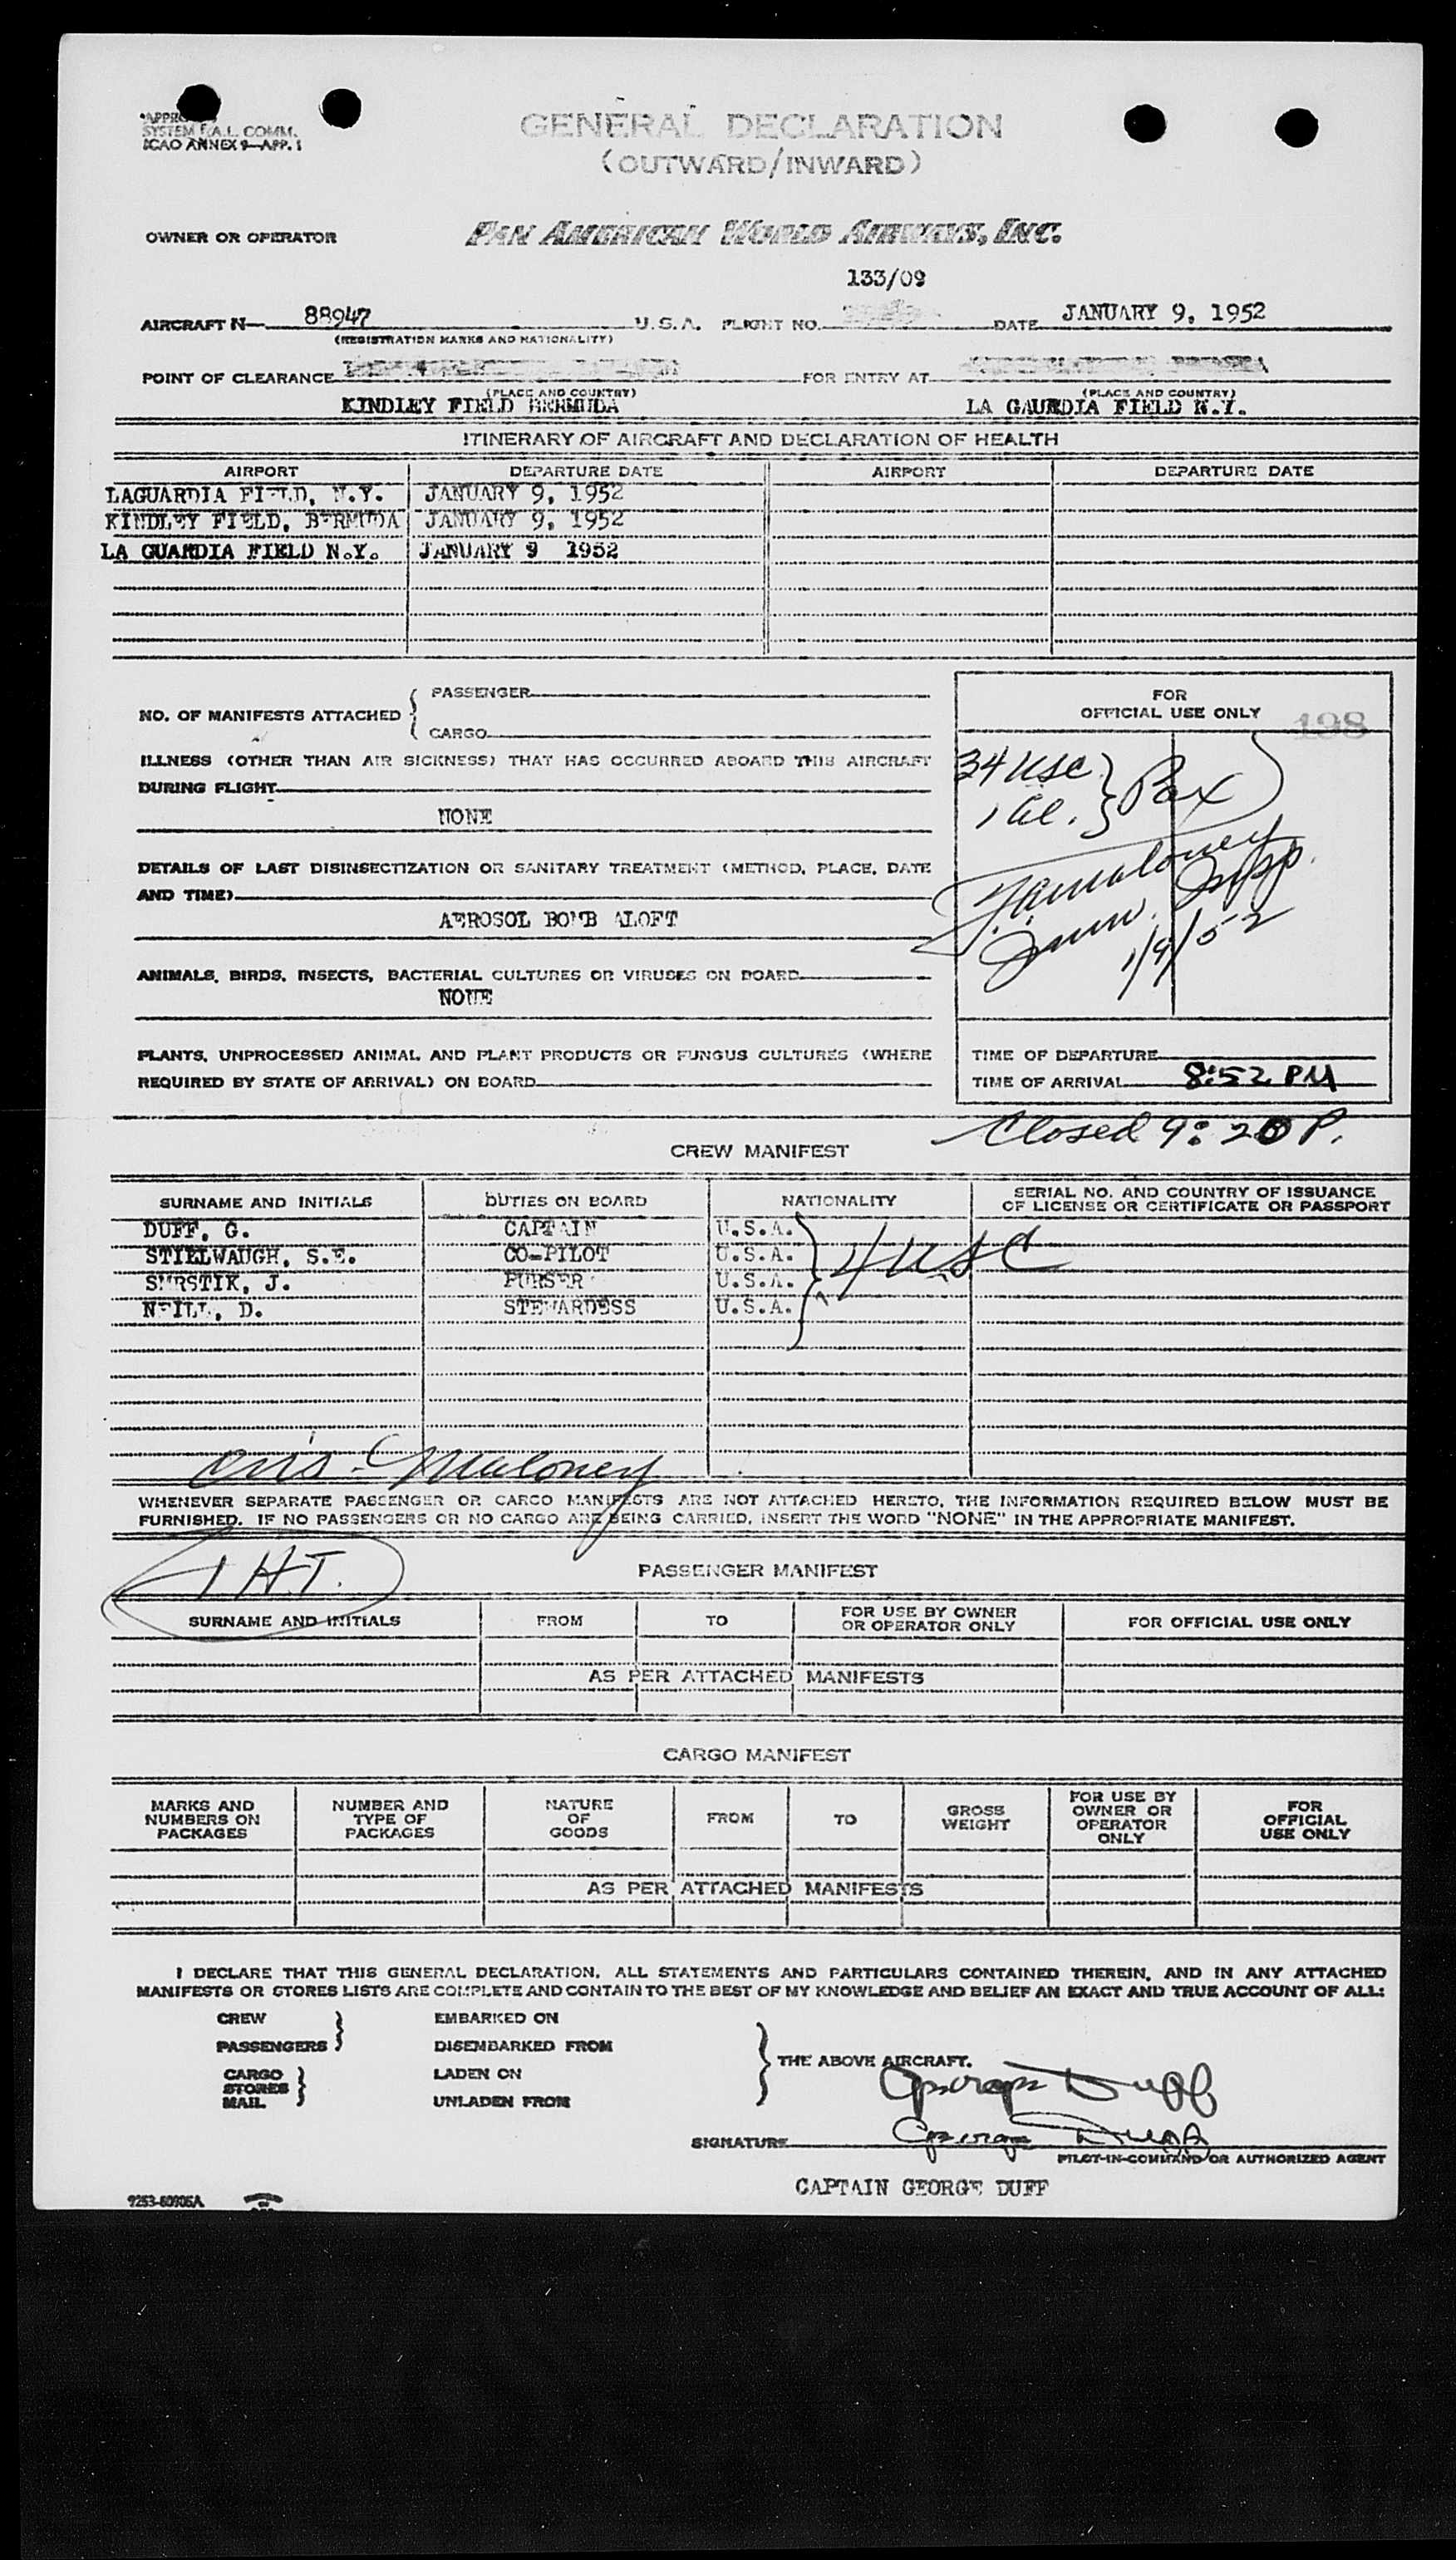 SYSTEM F.A.L. COMM.
ICAO ANNEX 9—APP. 1
GENERAL DECLARATION
(OUTWARD/INWARD)
OWNER OR OPERATOR PAN AMERICAN WORLD AIRWAYS, INC.
133/09
AIRCRAFT N— 88947 U.S.A. FLIGHT NO. DATE JANUARY 9, 1952
(REGISTRATION MARKS AND NATIONALITY)
POINT OF CLEARANCE FOR ENTRY AT
(PLACE AND COUNTRY) (PLACE AND COUNTRY)
KINDLEY FIELD BERMUDA LA GAURDIA FIELD N.Y.
ITINERARY OF AIRCRAFT AND DECLARATION OF HEALTH
AIRPORT DEPARTURE DATE AIRPORT DEPARTURE DATE
LAGUARDIA FIELD, N.Y. JANUARY 9, 1952
KINDLEY FIELD, BERMUDA JANUARY 9, 1952
LA GUARDIA FIELD N.Y. JANUARY 9 1952
NO. OF MANIFESTS ATTACHED { PASSENGER
CARGO
FOR
OFFICIAL USE ONLY 198
ILLNESS (OTHER THAN AIR SICKNESS) THAT HAS OCCURRED ABOARD THIS AIRCRAFT
DURING FLIGHT
NONE
34 USC } Pax
1 al.
DETAILS OF LAST DISINSECTIZATION OR SANITARY TREATMENT (METHOD, PLACE, DATE
AND TIME)
AEROSOL BOMB ALOFT
Maloney
Imm. Insp.
1/9/52
ANIMALS, BIRDS, INSECTS, BACTERIAL CULTURES OR VIRUSES ON BOARD
NONE
PLANTS, UNPROCESSED ANIMAL AND PLANT PRODUCTS OR FUNGUS CULTURES (WHERE
REQUIRED BY STATE OF ARRIVAL) ON BOARD
TIME OF DEPARTURE
TIME OF ARRIVAL 8:52 PM
Closed 9:20 P.
CREW MANIFEST
SURNAME AND INITIALS DUTIES ON BOARD NATIONALITY SERIAL NO. AND COUNTRY OF ISSUANCE
OF LICENSE OR CERTIFICATE OR PASSPORT
DUFF, G. CAPTAIN U.S.A.
STIELWAUGH, S.E. CO-PILOT U.S.A. } 4 USC
SMRSTIK, J. PURSER U.S.A.
NEILL, D. STEWARDESS U.S.A.
Maloney
WHENEVER SEPARATE PASSENGER OR CARGO MANIFESTS ARE NOT ATTACHED HERETO, THE INFORMATION REQUIRED BELOW MUST BE
FURNISHED. IF NO PASSENGERS OR NO CARGO ARE BEING CARRIED, INSERT THE WORD "NONE" IN THE APPROPRIATE MANIFEST.
1 H.T.
PASSENGER MANIFEST
SURNAME AND INITIALS FROM TO FOR USE BY OWNER
OR OPERATOR ONLY FOR OFFICIAL USE ONLY
AS PER ATTACHED MANIFESTS
CARGO MANIFEST
MARKS AND
NUMBERS ON
PACKAGES NUMBER AND
TYPE OF
PACKAGES NATURE
OF
GOODS FROM TO GROSS
WEIGHT FOR USE BY
OWNER OR
OPERATOR
ONLY FOR
OFFICIAL
USE ONLY
AS PER ATTACHED MANIFESTS
I DECLARE THAT THIS GENERAL DECLARATION, ALL STATEMENTS AND PARTICULARS CONTAINED THEREIN, AND IN ANY ATTACHED
MANIFESTS OR STORES LISTS ARE COMPLETE AND CONTAIN TO THE BEST OF MY KNOWLEDGE AND BELIEF AN EXACT AND TRUE ACCOUNT OF ALL:
CREW EMBARKED ON
PASSENGERS } DISEMBARKED FROM
THE ABOVE AIRCRAFT.
CARGO LADEN ON
STORES }
MAIL UNLADEN FROM
George Duff
SIGNATURE George Duff
PILOT-IN-COMMAND OR AUTHORIZED AGENT
CAPTAIN GEORGE DUFF
9253-60906A